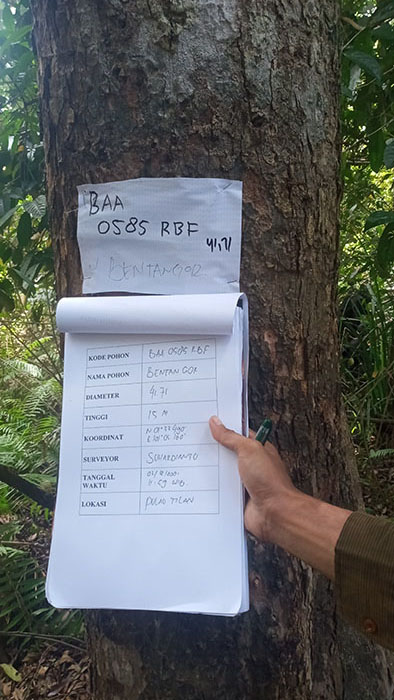 BAA
0585 RBF
41,71
BENTANGOR
KODE POHON BAA 0585 RBF
NAMA POHON BENTANGOR
DIAMETER 41,71
TINGGI 15 M
KOORDINAT
SURVEYOR
TANGGAL
WAKTU WIB
LOKASI PULAU TILAN